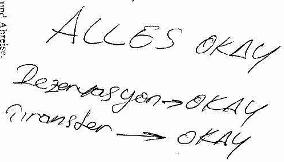 und Abreise.
ALLES OKAY
Rezervasyon → OKAY
Transfer → OKAY